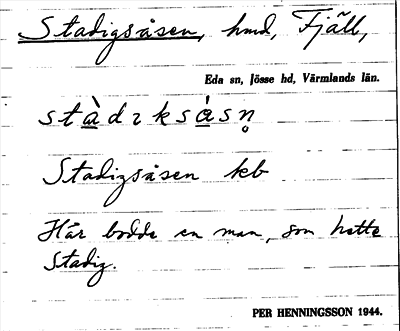 Stadigsåsen, hmd, Fjäll,
Eda sn, Jösse hd, Värmlands län.
stàdıksåsn̥
Stadigsåsen kb
Här bodde en man, som hette
Stadig.
PER HENNINGSSON 1944.